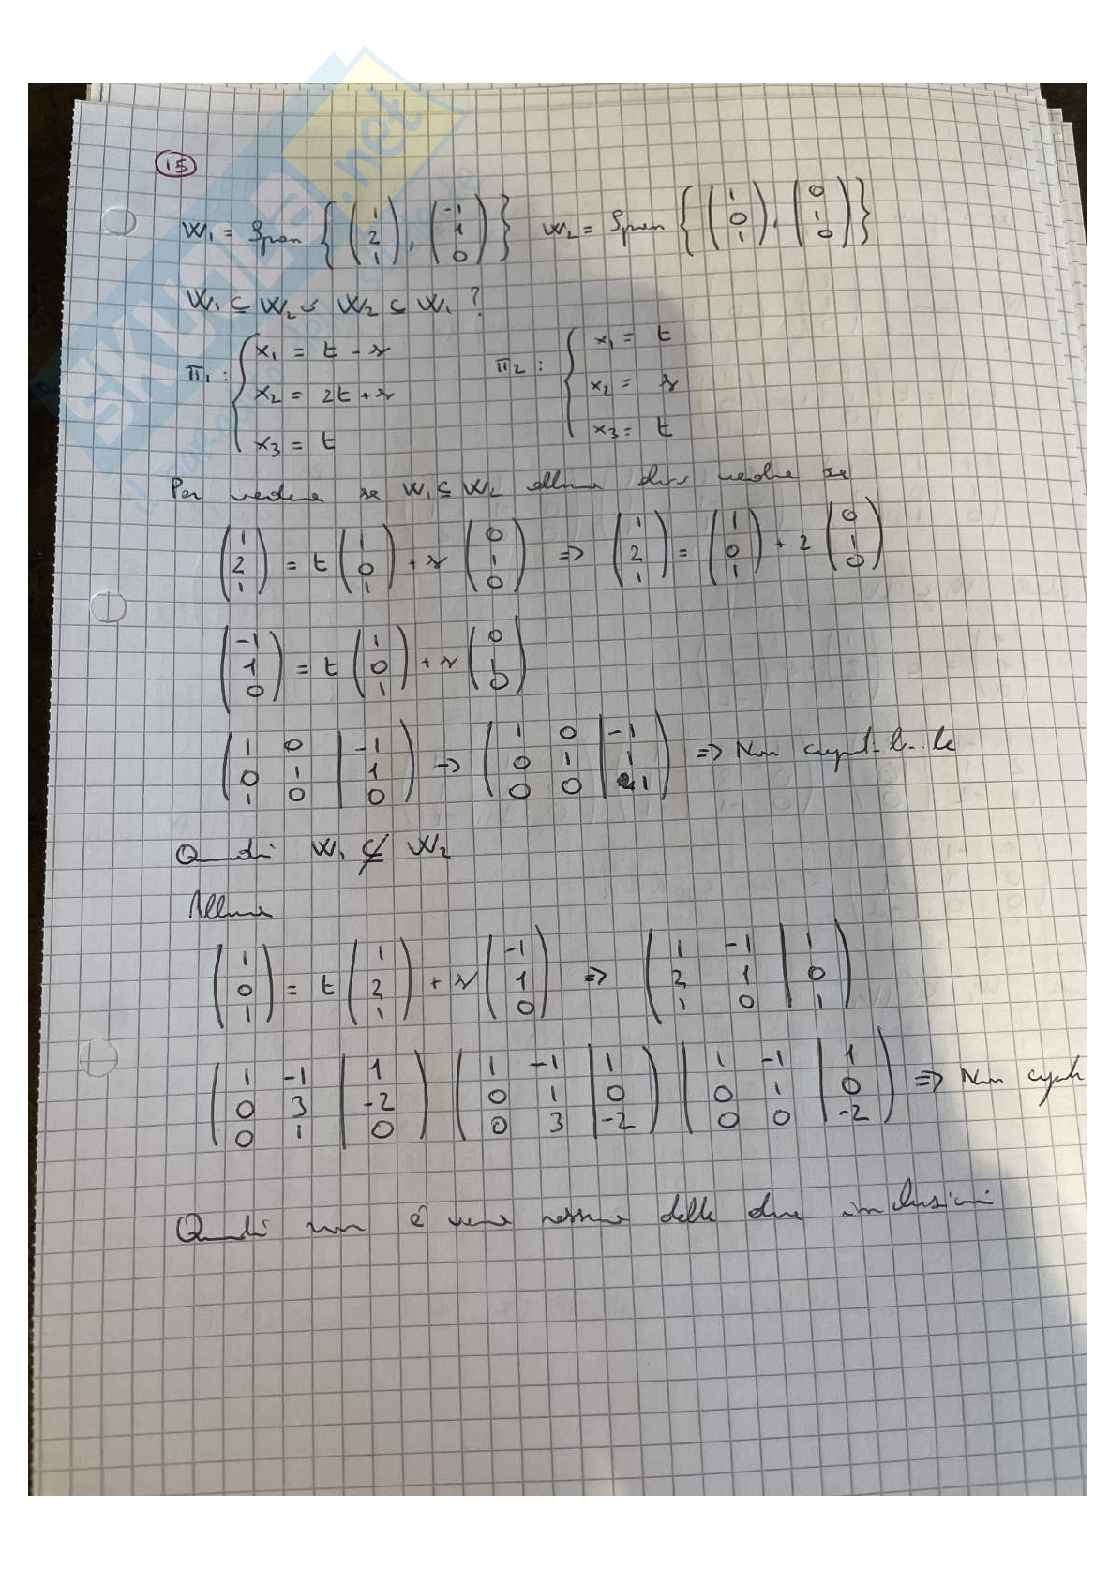 15
W₁ = Span { (1 2 1), (-1 1 0) } W₂ = Span { (1 0 1), (0 1 0) }
W₁ ⊆ W₂ W₂ ⊆ W₁ ?
π₁ : { x₁ = t - r
x₂ = 2t + r
x₃ = t
π₂ : { x₁ = t
x₂ = r
x₃ = t
Per vedere se W₁ ⊆ W₂ allora devo vedere se
(1 2 1) = t (1 0 1) + r (0 1 0) => (1 2 1) = (1 0 1) + 2 (0 1 0)
(-1 1 0) = t (1 0 1) + r (0 1 0)
( 1 0 | -1
0 1 | 1
1 0 | 0 ) -> ( 1 0 | -1
0 1 | 1
0 0 | 1 ) => Non
Quindi W₁ ⊄ W₂
Allora
(1 0 1) = t (1 2 1) + r (-1 1 0) => ( 1 -1 | 1
2 1 | 0
1 0 | 1 )
( 1 -1 | 1
0 3 | -2
0 1 | 0 ) ( 1 -1 | 1
0 1 | 0
0 3 | -2 ) ( 1 -1 | 1
0 1 | 0
0 0 | -2 ) => Non
Quindi non è vera nessuna delle due inclusioni
SKUOLA.net